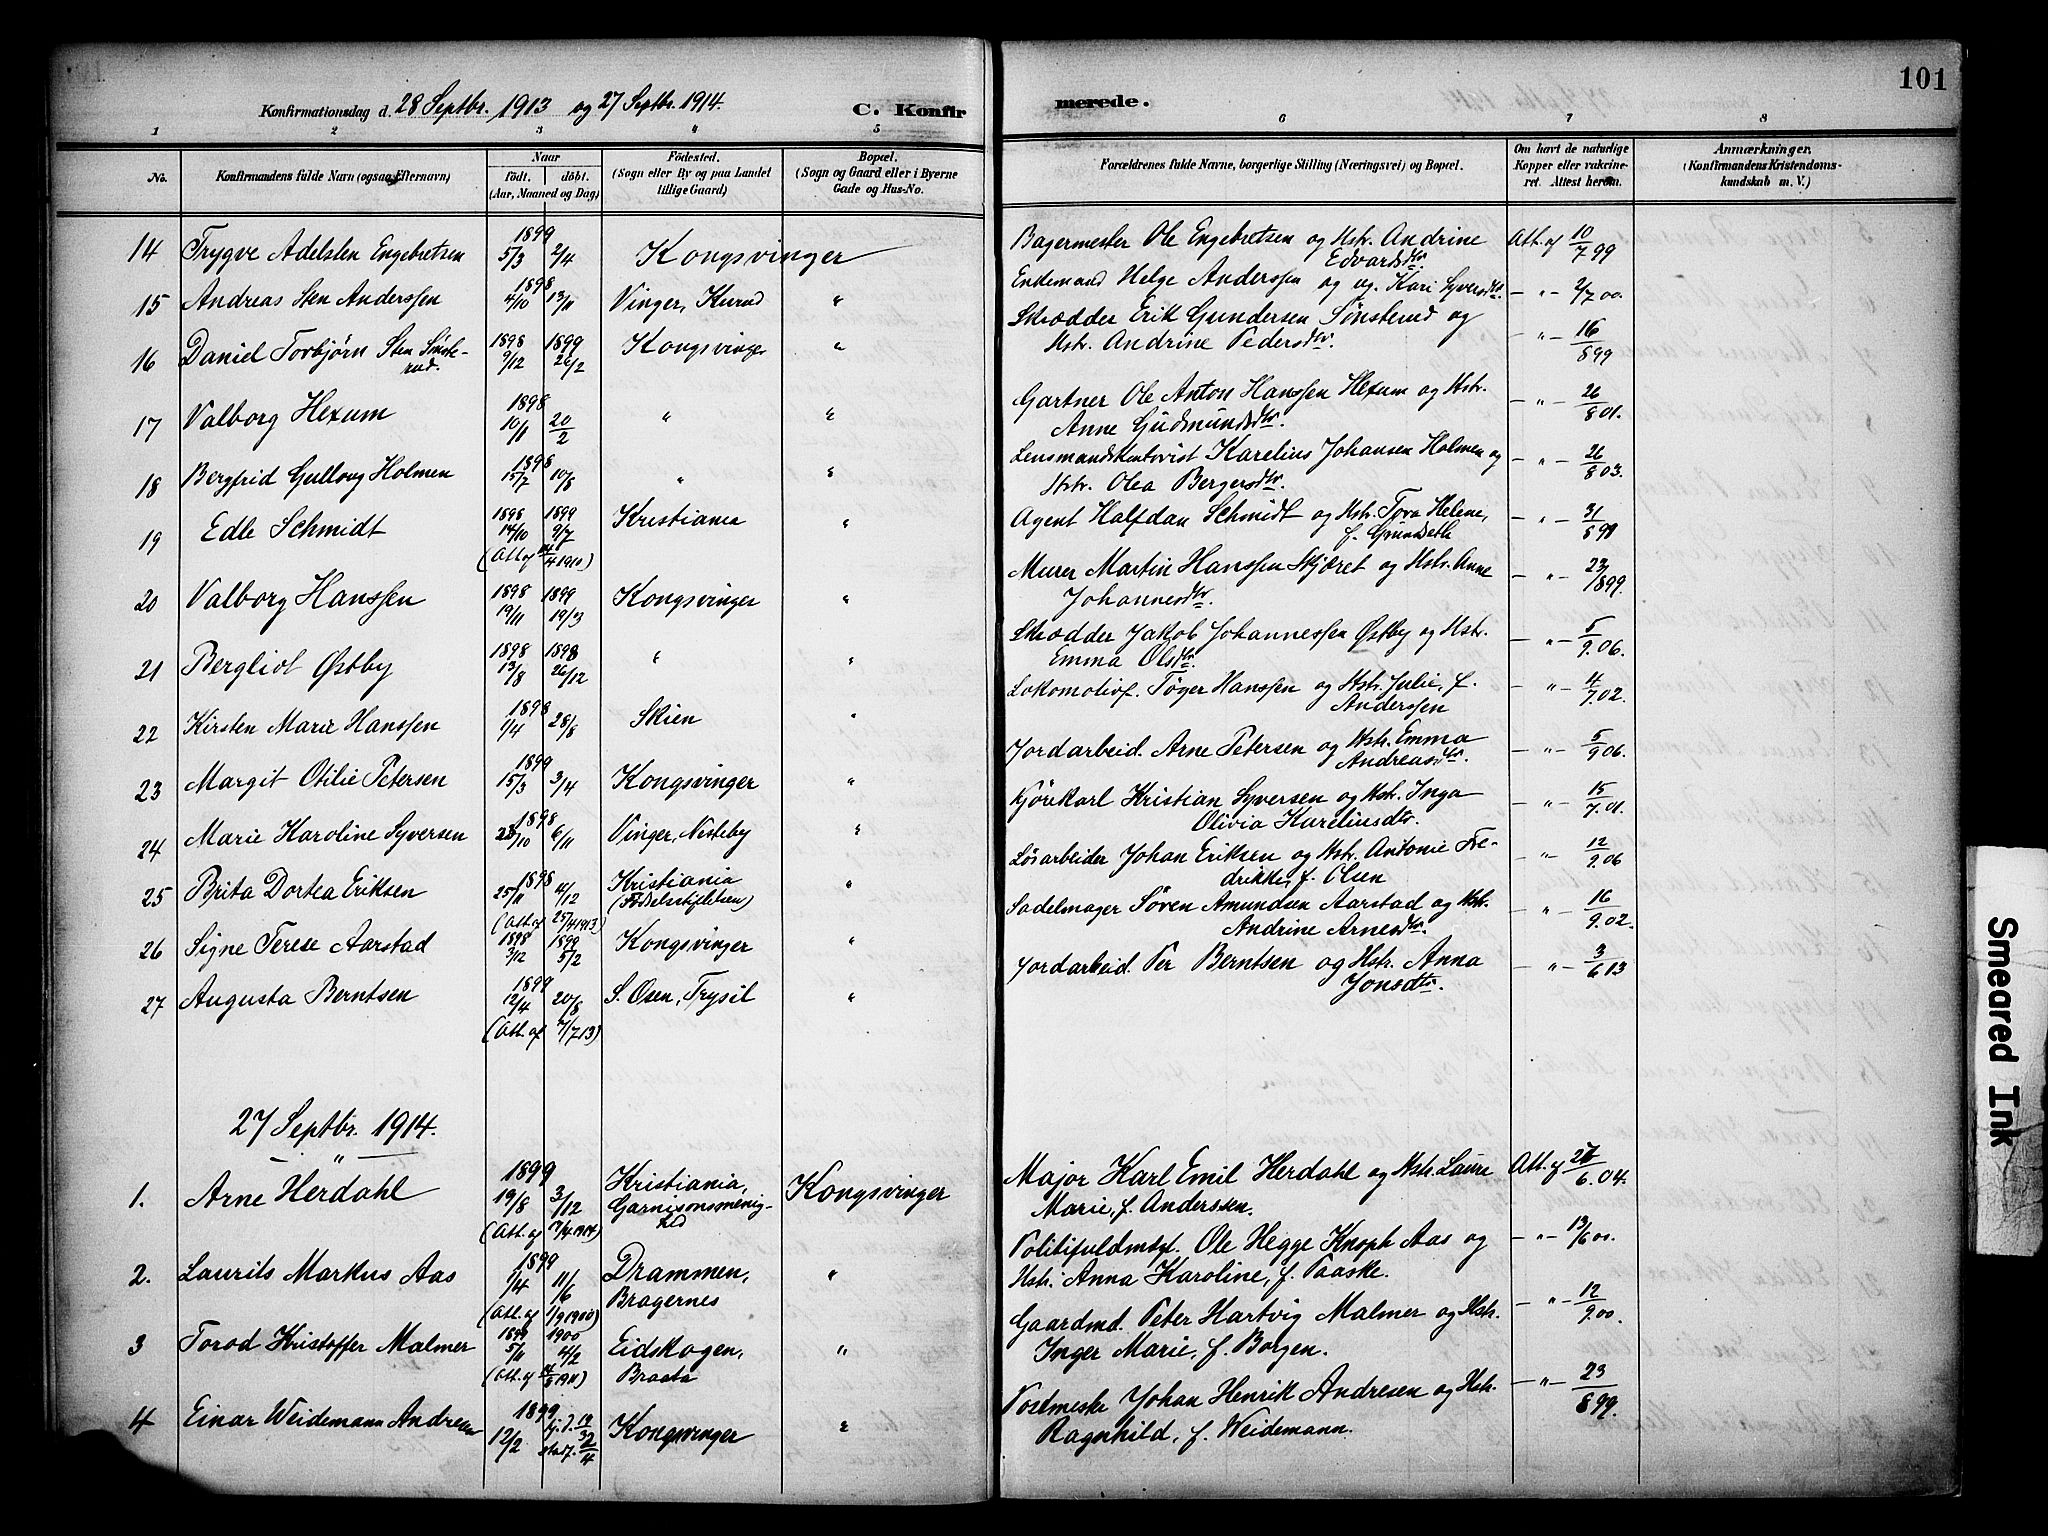 101
Konfirmationsdag d. 28 Septbr. 1913 og 27 Septbr. 1914. C. Konfirmerede.
1 2 3 4 5 6 7 8
No. Konfirmandens fulde Navn (ogsaa Efternavn) Naar födt. döbt. (Aar, Maaned og Dag) Födested. (Sogn eller By og paa Landet tillige Gaard) Bopæl. (Sogn og Gaard eller i Byerne Gade og Hus-No. Forældrenes fulde Navne, borgerlige Stilling (Næringsvei) og Bopæl. Om havt de naturlige Kopper eller vakcineret. Attest herom. Anmærkninger. (Konfirmandens Kristendomskundskab m. V.)
14 Trygve Adelsten Engebretsen 1899 5/3 2/4 Kongsvinger Bagermester Ole Engebretsen og Hstr. Andrine Edvardsdtr. Att. af 10/7 99
15 Andreas Sten Anderssen 1898 4/10 13/11 Vinger, Kurud " Enkemand Helge Anderssen og ug. Kari Syversdtr. — " — 2/7 00.
16 Daniel Torbjørn Sten Sønsterud. 1898 9/12 1899 26/2 Kongsvinger " Skrædder Erik Gundersen Sønsterud og Hstr. Andrine Pedersdtr. — " — 16/8 99
17 Valborg Hexum 1898 10/11 20/2 " " Gartner Ole Anton Hanssen Hexum og Hstr. Anne Gudmundsdtr. — " — 26/8 01.
18 Bergfrid Gullaug Holmen 1898 15/7 10/8 " " Lensmandskontorist Karelius Johansen Holmen og Hstr. Olea Bergersdtr. — " — 26/8 03.
19 Edle Schmidt 1898 14/10 1899 9/7 (Att. af 14/4 1910) Kristiania " Agent Halfdan Schmidt og Hstr. Tora Helene, f. Grundseth — " — 31/8 99
20 Valborg Hanssen 1898 19/11 1899 19/3 Kongsvinger " Murer Martin Hanssen Skjæret og Hstr. Anne Johannesdtr. — " — 23/8 99.
21 Bergliot Østby 1898 13/8 1898 26/12 " " Skrædder Jakob Johannessen Østby og Hstr. Emma Olsdtr. — " — 5/9. 06.
22 Kirsten Marie Hanssen 1898 1/4 28/8 Skien " Lokomotivf. Tøger Hanssen og Hstr. Julie, f. Anderssen — " — 4/7. 02.
23 Margit Otilie Petersen 1899 15/3 3/4 Kongsvinger " Jordarbeid. Arne Petersen og Hstr. Emma Andreasdtr. — " — 5/9 06.
24 Marie Karoline Syversen 1898 28/10 6/11 Vinger, Nisteby " Kjørekarl Kristian Syversen og Hstr. Inga Olivia Kareliusdtr. — " — 15/7. 01.
25 Brita Dortea Eriksen 1898 25/11 4/12 (Att. af 25/4 1913) Kristiania (Fødselsstiftelsen) " Løsarbeider Johan Eriksen og Hstr. Antonie Fredrikke, f. Olsen — " — 12/9. 06
26 Signe Terese Aarstad 1898 3/12 1899 5/2 Kongsvinger " Sadelmager Søren Amundsen Aarstad og Hstr. Andrine Arnesdtr. — " — 16/9. 02.
27 Augusta Berntsen 1899 12/4 20/8 (Att. af 7/7 13) S. Osen, Trysil " Jordarbeid. Per Berntsen og Hstr. Anna Jonsdtr. — " — 3/6 13
27 Septbr. 1914.
1. Arne Herdahl 1899 19/8 3/12 (Att. af 7/4 1914) Kristiania, Garnisonsmenighed Kongsvinger Major Karl Emil Herdahl og Hstr. Laura Marie, f. Anderssen. Att. af 27/6. 04.
2. Laurits Markus Aas 1899 1/4 11/6 (Att. af 1/9 1900) Drammen, Bragernes " Politifuldmægt. Ole Hegge Knoph Aas og Hstr. Anna Karoline, f. Paaske. — " — 13/6 00.
3 Torod Kristoffer Malmer 1899 5/11 1900 4/2 Eidskogen, Braata " Gaardmd. Peter Hartvig Malmer og Hstr. Inger Marie, f. Borgen. — " — 12/9. 00.
4 Einar Weidemann Andresen 1899 12/2 hj.d. 19/3 stadf. 2/4 Kongsvinger " Postmester Johan Henrik Andresen og Hstr. Ragnhild, f. Weidemann. — " — 23/8 99.
Smeared Ink